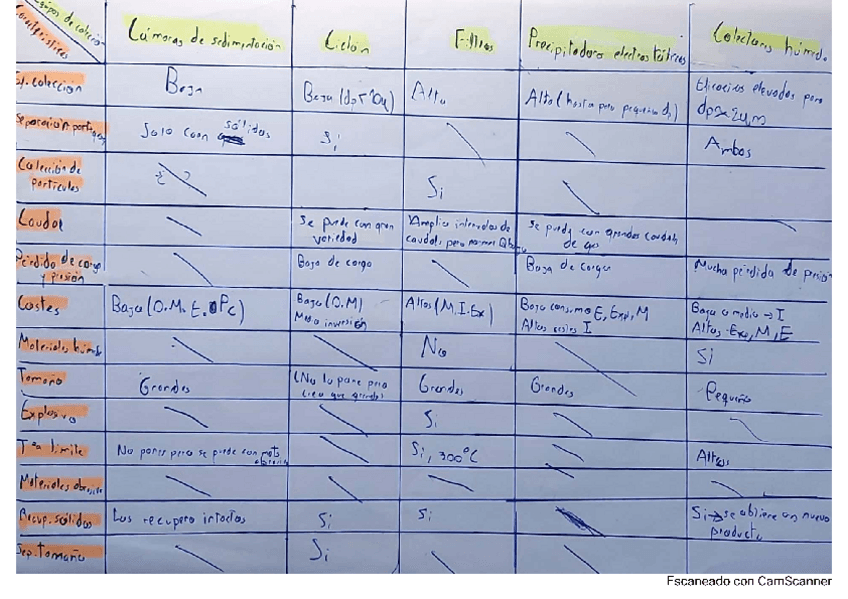 Equipos de colección
Características
Cámaras de sedimentación
Ciclón
Filtros
Precipitadores electrostáticos
Colectores húmedo
Ef. colección
Baja
Baja (dp<10µ)
Alta
Alta (hasta para pequeños dp)
Eficacias elevadas para
dp≥2µm
Separación
Solo con sólidos
Si
Ambos
Colección de
partículas
Si
Caudal
Se puede con gran
variedad
Amplios intervalos de
caudal, pero no mas
Se puede con grandes caudales
de gas
Pérdida de carga
y presión
Baja de carga
Baja de carga
Mucha pérdida de presión
Costes
Baja (O.M. E. Pc)
Baja (O.M)
Media inversión
Altos (M.I.Ex)
Bajo consumo E, Exp, M
Altos costes I
Bajo a medio → I
Altos Exp, M, E
Materiales húmedos
No
Si
Tamaño
Grandes
(No lo pone pero
creo que grandes)
Grandes
Grandes
Pequeño
Explosivo
Si
Tª límite
No pone pero se puede con
Si, 300°C
Altas
Materiales abrasivos
Recup. sólidos
Los recupera intactos
Si
Si
Si → se obtiene un nuevo
producto
Sep. tamaño
Si
Escaneado con CamScanner